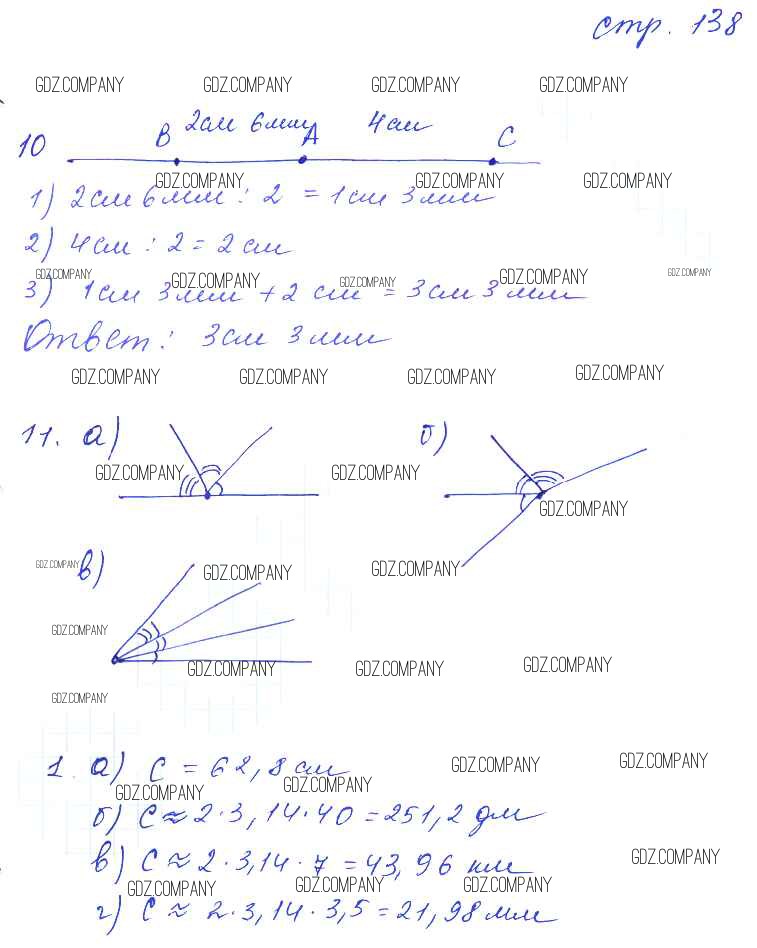 стр. 138
GDZ.COMPANY GDZ.COMPANY GDZ.COMPANY GDZ.COMPANY
10 B 2см 6мм A 4см C
GDZ.COMPANY GDZ.COMPANY GDZ.COMPANY
1) 2см 6мм : 2 = 1см 3мм
2) 4см : 2 = 2см
GDZ.COMPANY GDZ.COMPANY GDZ.COMPANY GDZ.COMPANY GDZ.COMPANY
3) 1см 3мм + 2 см = 3см 3мм
Ответ: 3см 3мм
GDZ.COMPANY GDZ.COMPANY GDZ.COMPANY GDZ.COMPANY
11. а) б)
GDZ.COMPANY GDZ.COMPANY
GDZ.COMPANY
GDZ.COMPANY в) GDZ.COMPANY GDZ.COMPANY
GDZ.COMPANY
GDZ.COMPANY GDZ.COMPANY GDZ.COMPANY
GDZ.COMPANY
1. а) C = 62,8 см GDZ.COMPANY GDZ.COMPANY
GDZ.COMPANY GDZ.COMPANY
б) C ≈ 2·3,14·40 = 251,2 дм
в) C ≈ 2·3,14·7 = 43,96 км GDZ.COMPANY
GDZ.COMPANY GDZ.COMPANY GDZ.COMPANY
г) C ≈ 2·3,14·3,5 = 21,98 мм